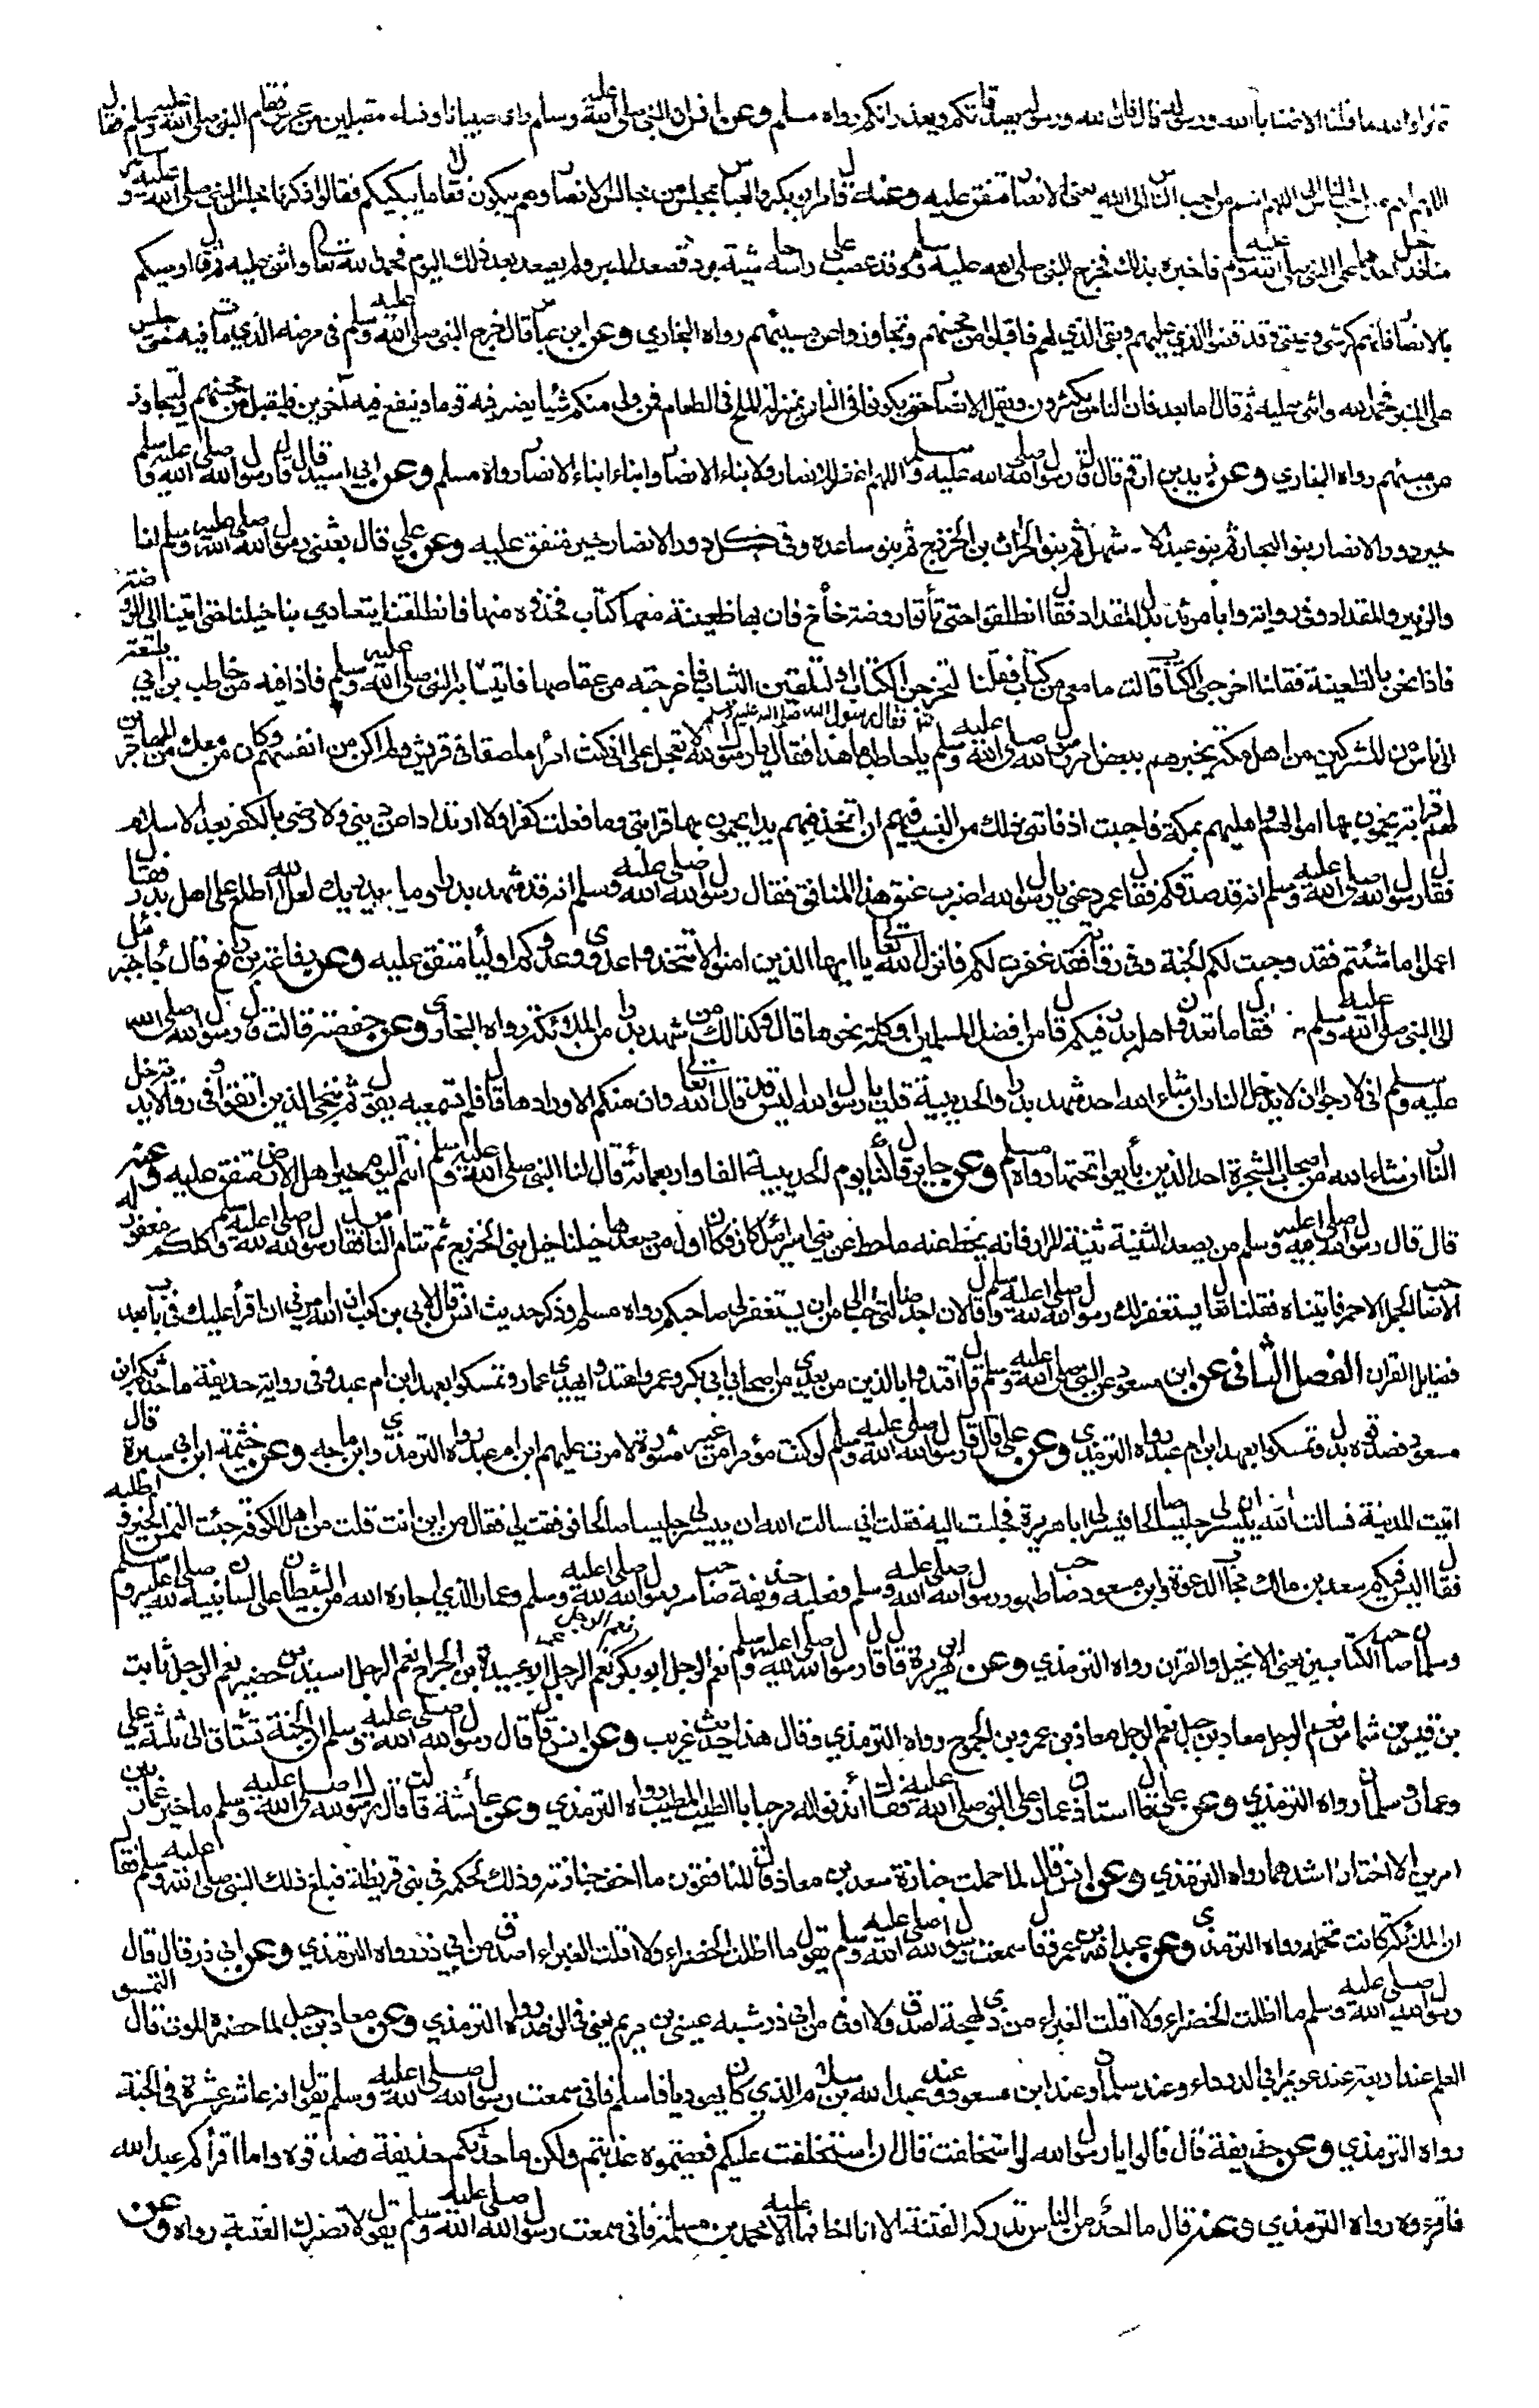 تراه والله ما قلنا الا ضنا بالله ورسوله قال فان الله ورسوله يصدقانكم ويعذرانكم رواه مسلم وعن انس ان النبي صلى الله عليه وسلم راى صبيانا ونساء مقبلين من عرس فقام النبي صلى الله عليه وسلم فقال
اللهم انتم من احب الناس الى اللهم انتم من احب الناس الى الله يعني الانصار متفق عليه وعنه قال مر ابو بكر والعباس بمجلس من مجالس الانصار وهم يبكون فقال ما يبكيكم فقالوا ذكرنا مجلس النبي صلى الله عليه و
منا فدخل احدهما على النبي صلى الله عليه وسلم فاخبره بذلك فخرج النبي صلى الله عليه وسلم وقد عصب على راسه حاشية برد فصعد المنبر ولم يصعد بعد ذلك اليوم فحمد الله تعالى واثنى عليه ثم قال اوصيكم
بالانصار فانهم كرشي وعيبتي وقد قضوا الذي عليهم وبقي الذي لهم فاقبلوا من محسنهم وتجاوزوا عن مسيئهم رواه البخاري وعن ابن عباس قال خرج النبي صلى الله عليه وسلم في مرضه الذي مات فيه حتى جلس
على المنبر فحمد الله واثنى عليه ثم قال اما بعد فان الناس يكثرون ويقل الانصار حتى يكونوا في الناس بمنزلة الملح في الطعام فمن ولي منكم شيئا يضر فيه قوما وينفع فيه آخرين فليقبل من محسنهم وليتجاوز
عن مسيئهم رواه البخاري وعن زيد بن ارقم قال قال رسول الله صلى الله عليه وسلم اللهم اغفر للانصار ولابناء الانصار وابناء ابناء الانصار رواه مسلم وعن ابي اسيد قال قال رسول الله صلى الله عليه وسلم
خير دور الانصار بنو النجار ثم بنو عبد الاشهل ثم بنو الحارث بن الخزرج ثم بنو ساعدة وفي كل دور الانصار خير متفق عليه وعن علي قال بعثني رسول الله صلى الله عليه وسلم انا
والزبير والمقداد وفي رواية وابا مرثد بدل المقداد فقال انطلقوا حتى تأتوا روضة خاخ فان بها ظعينة معها كتاب فخذوه منها فانطلقنا يتعادى بنا خيلنا حتى اتينا الى الروضة
فاذا نحن بالظعينة فقلنا اخرجي الكتاب قالت ما معي من كتاب فقلنا لتخرجن الكتاب او لتلقين الثياب فاخرجته من عقاصها فاتينا به النبي صلى الله عليه وسلم فاذا فيه من حاطب بن ابي بلتعة
الى ناس من المشركين من اهل مكة يخبرهم ببعض امر رسول الله صلى الله عليه وسلم فقال رسول الله صلى الله عليه وسلم يا حاطب ما هذا فقال يا رسول الله لا تعجل علي اني كنت امرأ ملصقا في قريش ولم اكن من انفسهم وكان من معك من المهاجرين
لهم قرابة يحمون بها اموالهم واهليهم بمكة فاحببت اذ فاتني ذلك من النسب فيهم ان اتخذ فيهم يدا يحمون بها قرابتي وما فعلت كفرا ولا ارتدادا من ديني ولا رضى بالكفر بعد الاسلام
فقال رسول الله صلى الله عليه وسلم انه قد صدقكم فقال عمر دعني يا رسول الله اضرب عنق هذا المنافق فقال رسول الله صلى الله عليه وسلم انه قد شهد بدرا وما يدريك لعل الله اطلع على اهل بدر فقال
اعملوا ما شئتم فقد وجبت لكم الجنة وفي رواية فقد غفرت لكم فانزل الله تعالى يا ايها الذين امنوا لا تتخذوا عدوي وعدوكم اولياء متفق عليه وعن رفاعة بن رافع قال جاء جبرئيل
الى النبي صلى الله عليه وسلم فقال ما تعدون اهل بدر فيكم قال من افضل المسلمين او كلمة نحوها قال وكذلك من شهد بدرا من الملائكة رواه البخاري وعن حفصة قالت قال رسول الله صلى الله
عليه وسلم اني لارجو ان لا يدخل النار ان شاء الله احد شهد بدرا والحديبية قلت يا رسول الله اليس قد قال الله تعالى وان منكم الا واردها قال فلم تسمعيه يقول ثم ننجي الذين اتقوا وفي رواية لا يدخل
النار ان شاء الله من اصحاب الشجرة احد الذين بايعوا تحتها رواه مسلم وعن جابر قال كنا يوم الحديبية الفا واربعمائة قال لنا النبي صلى الله عليه وسلم انتم اليوم خير اهل الارض متفق عليه وعنه
قال قال رسول الله صلى الله عليه وسلم من يصعد الثنية ثنية المرار فانه يحط عنه ما حط عن بني اسرائيل وكان اول من صعدها خيلنا خيل بني الخزرج ثم تتام الناس فقال رسول الله صلى الله عليه وسلم وكلكم مغفور له
الا صاحب الجمل الاحمر فاتيناه فقلنا تعال يستغفر لك رسول الله صلى الله عليه وسلم قال لان اجد ضالتي احب الي من ان يستغفر لي صاحبكم رواه مسلم وذكر حديث انس قال لابي بن كعب ان الله امرني ان اقرأ عليك في باب بعد
فضايل القران الفصل الثاني عن ابن مسعود عن النبي صلى الله عليه وسلم قال اقتدوا بالذين من بعدي من اصحابي ابي بكر وعمر واهتدوا بهدي عمار وتمسكوا بعهد ابن ام عبد وفي رواية حذيفة ما حدثكم ابن
مسعود فصدقوه بدل وتمسكوا بعهد ابن ام عبد رواه الترمذي وعن علي قال قال رسول الله صلى الله عليه وسلم لو كنت مؤمرا من غير مشورة لامرت عليهم ابن ام عبد رواه الترمذي وابن ماجه وعن خيثمة ابن ابي سبرة قال
اتيت المدينة فسالت الله ان ييسر لي جليسا صالحا فيسر لي ابا هريرة فجلست اليه فقلت اني سالت الله ان ييسر لي جليسا صالحا فوفقت لي فقال من اين انت قلت من اهل الكوفة جئت التمس الخير واطلبه
فقال اليس فيكم سعد بن مالك مجاب الدعوة وابن مسعود صاحب طهور رسول الله صلى الله عليه وسلم ونعليه وحذيفة صاحب سر رسول الله صلى الله عليه وسلم وعمار الذي اجاره الله من الشيطان على لسان نبيه صلى الله عليه وسلم
وسلمان صاحب الكتابين يعني الانجيل والقران رواه الترمذي وعن ابي هريرة قال قال رسول الله صلى الله عليه وسلم نعم الرجل ابو بكر نعم الرجل عمر نعم الرجل ابو عبيدة بن الجراح نعم الرجل اسيد بن حضير نعم الرجل ثابت
بن قيس بن شماس نعم الرجل معاذ بن جبل نعم الرجل معاذ بن عمرو بن الجموح رواه الترمذي وقال هذا حديث غريب وعن انس قال قال رسول الله صلى الله عليه وسلم ان الجنة تشتاق الى ثلثة علي
وعمار وسلمان رواه الترمذي وعن علي قال استاذن عمار على النبي صلى الله عليه فقال ائذنوا له مرحبا بالطيب المطيب رواه الترمذي وعن عائشة قالت قال رسول الله صلى الله عليه وسلم ما خير عمار بين
امرين الا اختار اشدهما رواه الترمذي وعن انس قال لما حملت جنازة سعد بن معاذ قال المنافقون ما اخف جنازته وذلك لحكمه في بني قريظة فبلغ ذلك النبي صلى الله عليه وسلم فقال
ان الملائكة كانت تحمله رواه الترمذي وعن عبد الله بن عمرو قال سمعت رسول الله صلى الله عليه وسلم يقول ما اظلت الخضراء ولا اقلت الغبراء اصدق من ابي ذر رواه الترمذي وعن ابي ذر قال قال
رسول الله صلى الله عليه وسلم ما اظلت الخضراء ولا اقلت الغبراء من ذي لهجة اصدق ولا اوفى من ابي ذر شبه عيسى بن مريم يعني في الزهد رواه الترمذي وعن معاذ بن جبل لما حضره الموت قال التمسوا
العلم عند اربعة عند عويمر ابي الدرداء وعند سلمان وعند ابن مسعود وعند عبد الله بن سلام الذي كان يهوديا فاسلم فاني سمعت رسول الله صلى الله عليه وسلم يقول انه عاشر عشرة في الجنة
رواه الترمذي وعن حذيفة قال قالوا يا رسول الله لو استخلفت قال ان استخلفت عليكم فعصيتموه عذبتم ولكن ما حدثكم حذيفة فصدقوه وما اقرأكم عبد الله
فاقرءوه رواه الترمذي وعنه قال ما احد من الناس تدركه الفتنة الا انا اخافها عليه الا محمد بن مسلمة فاني سمعت رسول الله صلى الله عليه وسلم يقول لا تضرك الفتنة رواه وعن